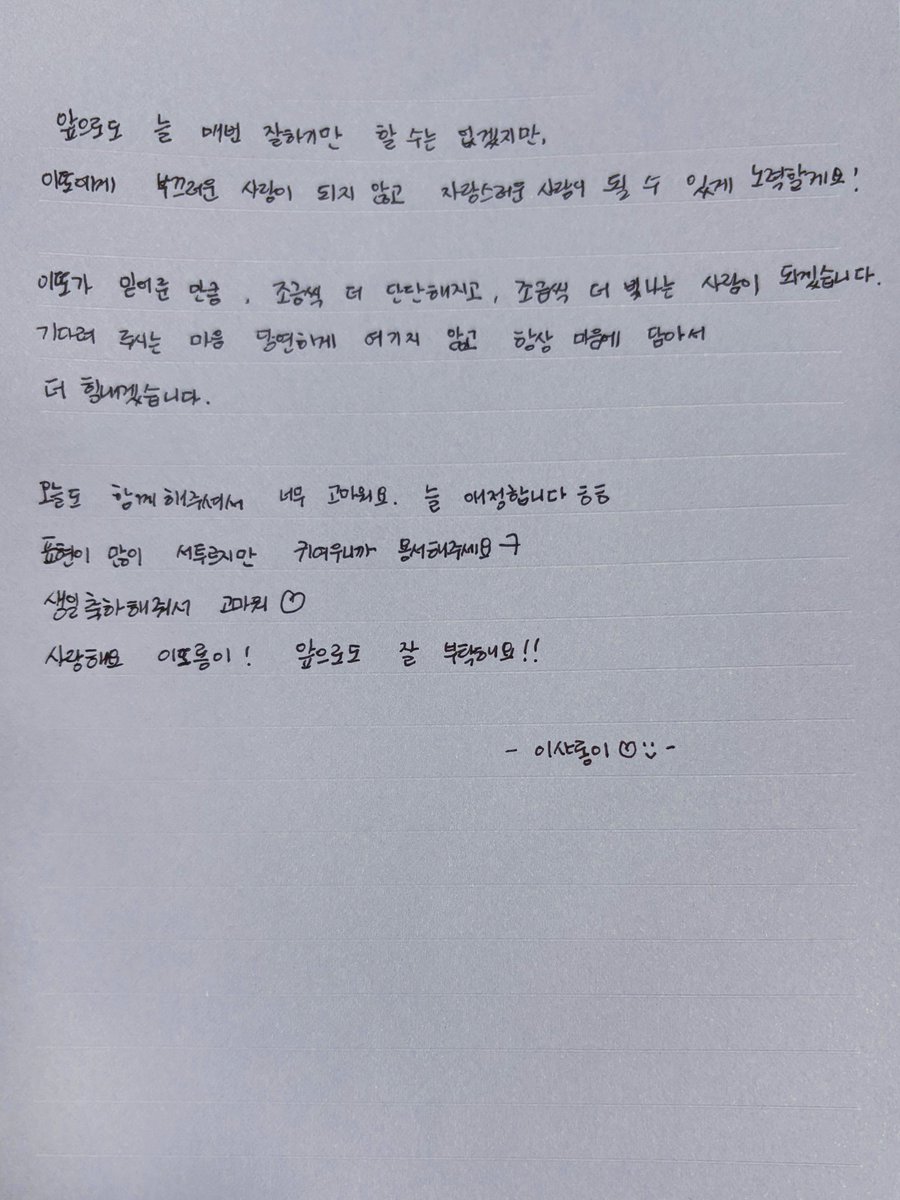 앞으로도 늘 매번 잘하기만 할 수는 없겠지만,
이또에게 부끄러운 사람이 되지 않고 자랑스러운 사람이 될 수 있게 노력할게요!
이또가 믿어준 만큼, 조금씩 더 단단해지고, 조금씩 더 빛나는 사람이 되겠습니다.
기다려 주시는 마음 당연하게 여기지 않고 항상 마음에 담아서
더 힘내겠습니다.
오늘도 함께해주셔서 너무 고마워요. 늘 애정합니다 ㅎㅎ
표현이 많이 서투르지만 귀여우니까 용서해주세요 ㅋ
생일축하해줘서 고마워 ♡
사랑해요 이또롱이! 앞으로도 잘 부탁해요!!
- 이사롱이 ♡ :) -